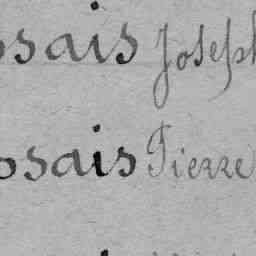 osais Joseph
osais Pierre